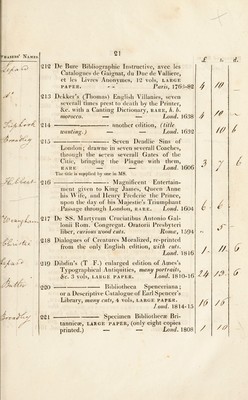 21
£ s. d.
212 De Bure Bibliographie Instructive, avec les
Catalogues de Gaignat, du Duc de Valliere,
et les Livres Anonymes, 12 vols, LARGE
PAPER. Paris, 1763-82 4 10 -
213 Dekker's (Thomas) English Villanies, seven
severall times prest to death by the Printer,
&c. with a Canting Dictionary, RARE, b. b.
morocco. — Lond. 1638 4 10 -
214 ——— another edition, (title
wanting.) — Lond. 1632 10 6
215 ——— Seven Deadlie Sins of
London; drawne in seven severall Coaches,
through the seven severall Gates of the
Citie, bringing the Plague with them,
RARE — Lond. 1606 3 7 6
The title is supplied by one in MS.
216 ——— Magnificent Entertain-
ment given to King James, Queen Anne
his Wife, and Henry Frederic the Prince,
upon the day of his Majestie's Triumphant
Passage through London, RARE. Lond. 1604
217 De SS. Martyrum Cruciatibus Antonio Gal-
lonii Rom. Congregat. Oratorii Presbytero
liber, curious wood cuts. Rome, 1594 - 5
218 Dialogues of Creatures Moralized, re-printed
from the only English edition, with cuts.
Lond. 1816 1 11 6
219 Dibdin's (T F.) enlarged edition of Ames's
Typographical Antiquities, many portraits,
&c. 3 vols, LARGE PAPER. Lond. 1810-16 24 13 6
220 ——— Bibliotheca Spenceriana;
or a Descriptive Catalogue of Earl Spencer's
Library, many cuts, 4 vols, LARGE PAPER.
Lond. 1814-15 16 16
221 ——— Specimen Bibliothecæ Bri-
tannicæ, LARGE PAPER, (only eight copies
printed.) — Lond. 1808 1 10